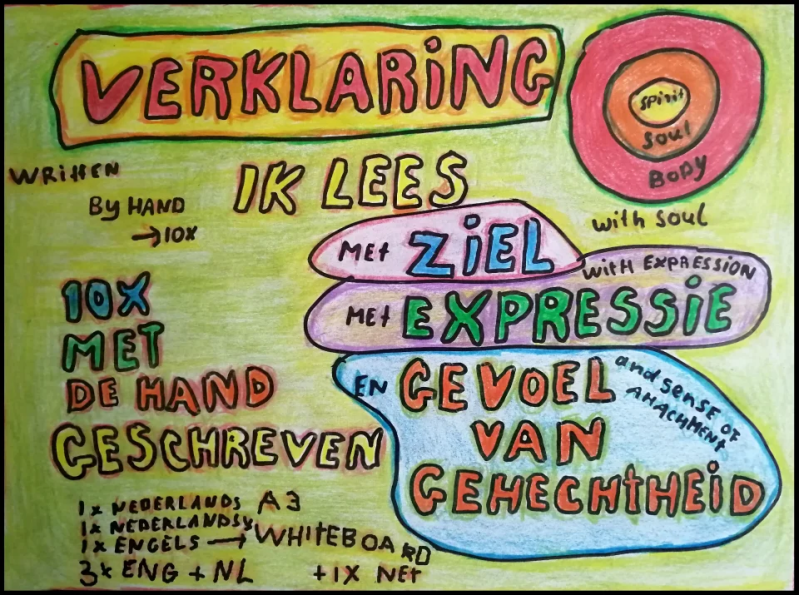 VERKLARING
Spirit
Soul
BODY
WRITTEN
BY HAND
→10X
IK LEES
with soul
MET ZIEL
WITH EXPRESSION
MET EXPRESSIE
10X
MET
DE HAND
GESCHREVEN
EN GEVOEL
VAN
GEHECHTHEID
and sense of
ANACHMENT
1x NEDERLANDS A3
1x NEDERLANDS
1x ENGELS → WHITEBOARD
3x ENG + NL + 1X NET